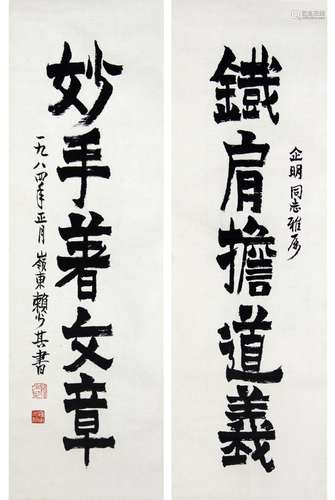 鐵肩擔道義
企明同志雅属
妙手著文章
一九八四年正月嶺東賴少其書